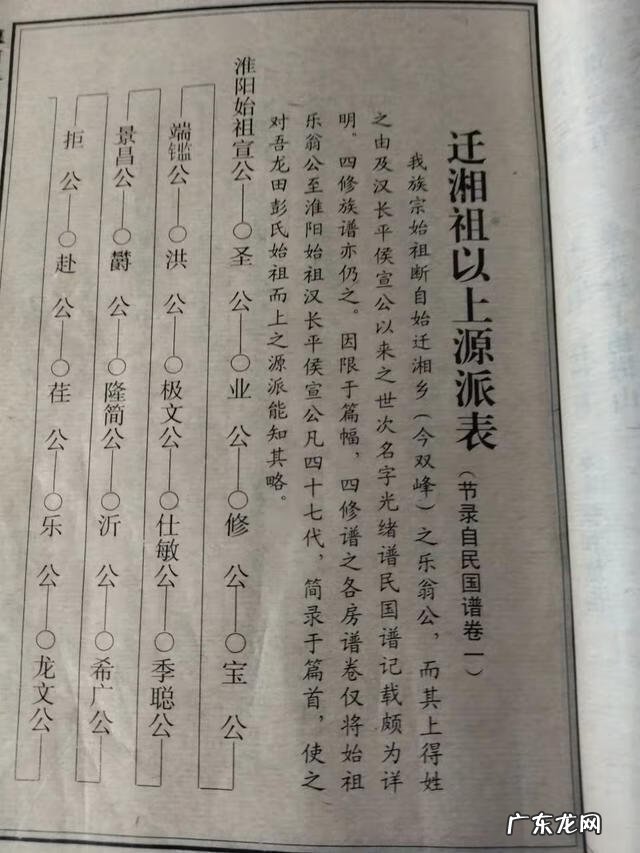 迁湘祖以上源派表(节录自民国谱卷一)
我族宗始祖断自始迁湘乡(今双峰)之乐翁公,而其上得姓
之由及汉长平侯宣公以来之世次名字光绪谱民国谱记载颇为详
明。四修族谱亦仍之。因限于篇幅,四修谱之各房谱卷仅将始祖
乐翁公至淮阳始祖汉长平侯宣公凡四十七代,简录于篇首,使之
对吾龙田彭氏始祖而上之源派能知其略。
淮阳始祖宣公——○圣 公——○业 公——○修 公——○宝 公
端镒公——○洪 公——○极文公——○仕敏公——○季聪公
景昌公——○欝 公——○隆简公——○沂 公——○希广公
拒 公——○赴 公——○荏 公——○乐 公——○龙文公
广东龙网